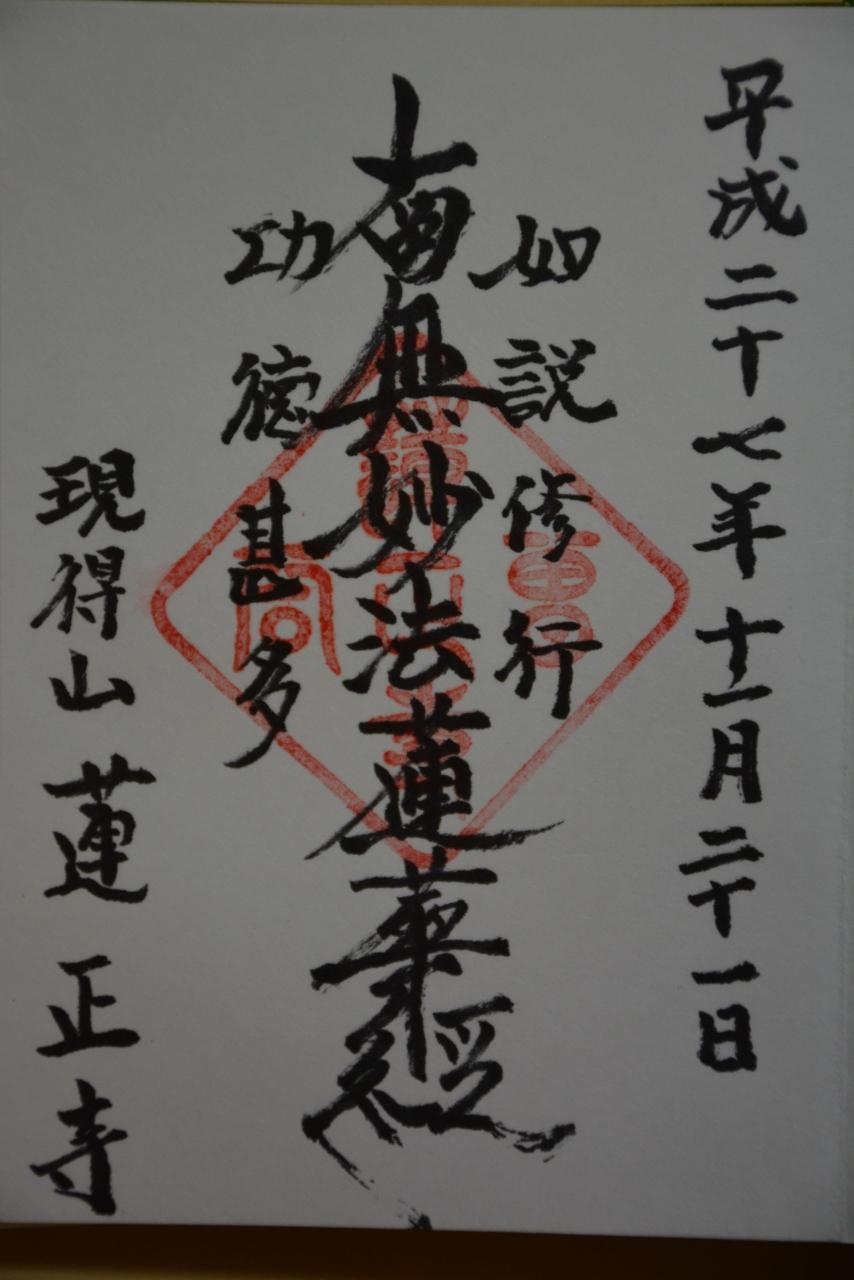 平成二十七年十一月二十一日
如説修行
南無妙法蓮華経
功徳甚多
現得山 蓮正寺